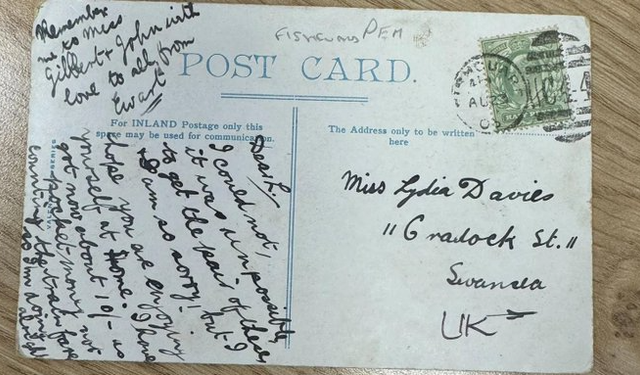 Remember
me to Miss
Gilbert & John with
love to all from
Ewart
FISHGUARD PEM
POST CARD.
For INLAND Postage only this
space may be used for communication.
The Address only to be written
here
Dear L,
I could not,
it was impossible
to get the pair of these.
I am so sorry! but I
hope you are enjoying
yourself at home. I have
got now about 10/- as
pocket money not
counting the train fare
so I'm doing
alright
Miss Lydia Davies
"Cradock St."
Swansea
UK
SERIES
AU 23